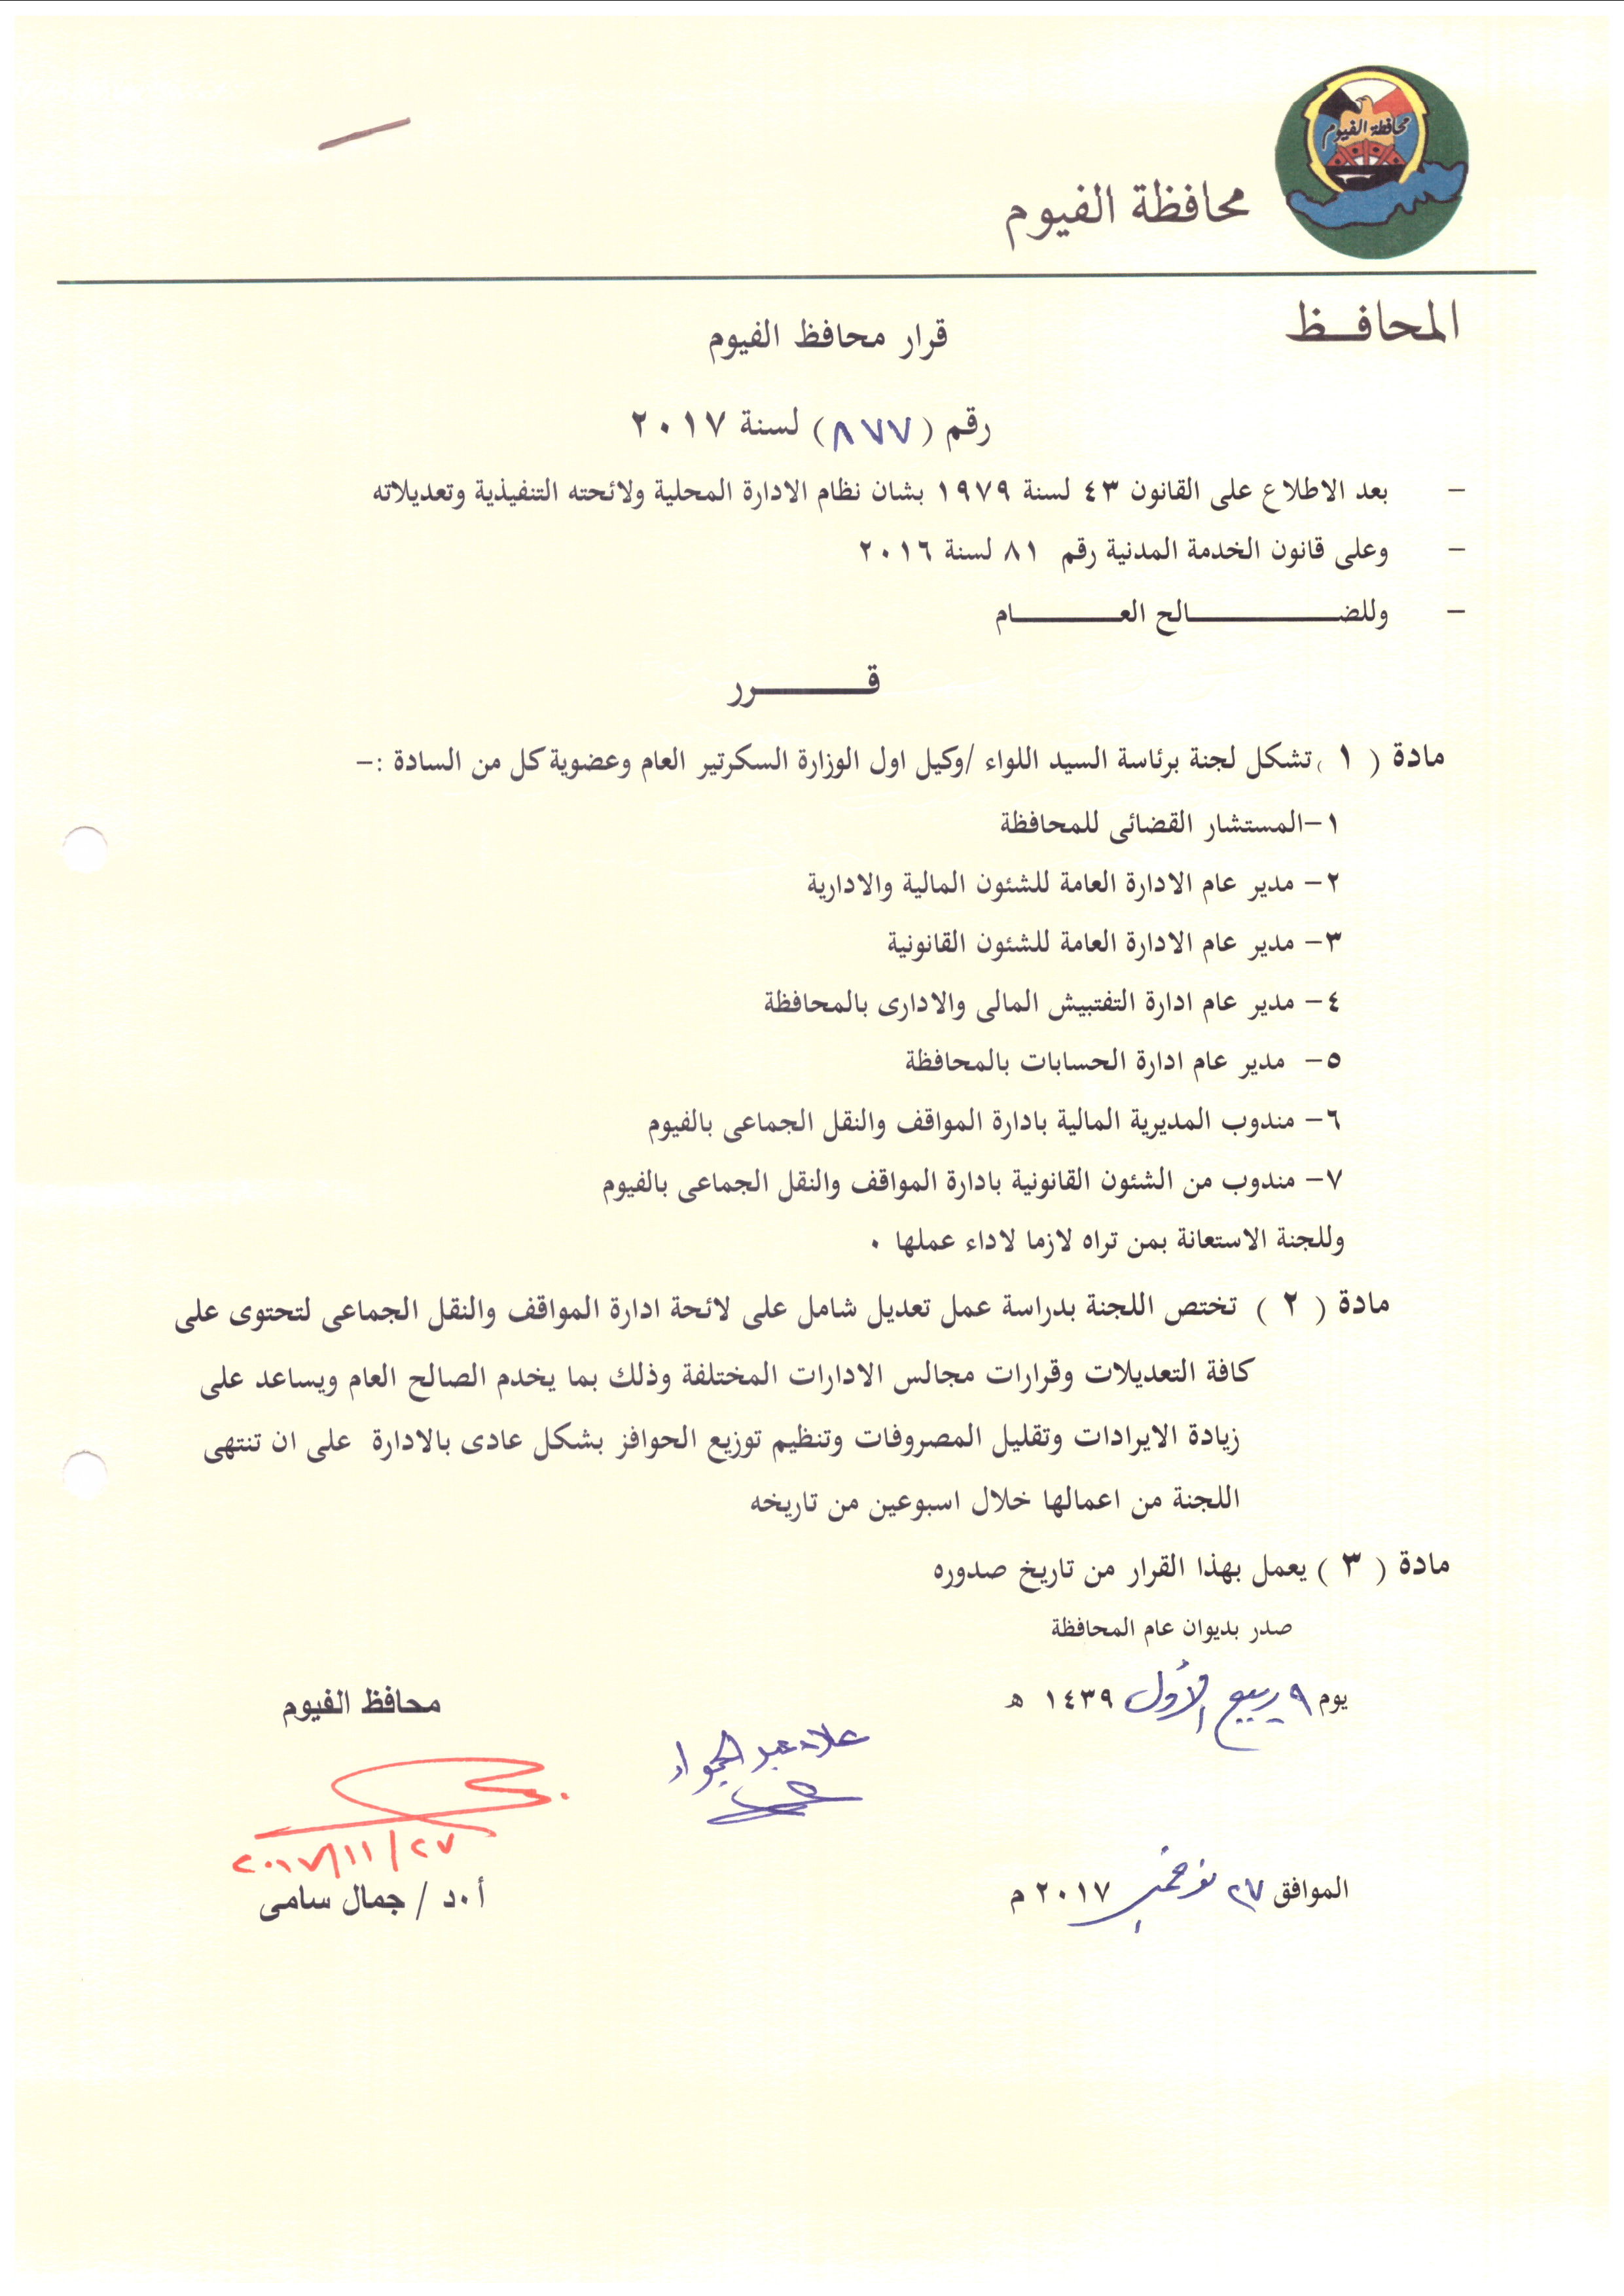 محافظة الفيوم
محافظة الفيوم
المحافـــظ
قرار محافظ الفيوم
رقم ( ٨٧٧ ) لسنة ٢٠١٧
- بعد الاطلاع على القانون ٤٣ لسنة ١٩٧٩ بشان نظام الادارة المحلية ولائحته التنفيذية وتعديلاته
- وعلى قانون الخدمة المدنية رقم ٨١ لسنة ٢٠١٦
- وللضـــــــــــالح العـــــــــام
قـــــــــرر
مادة ( ١ ) تشكل لجنة برئاسة السيد اللواء /وكيل اول الوزارة السكرتير العام وعضوية كل من السادة :-
١-المستشار القضائى للمحافظة
٢- مدير عام الادارة العامة للشئون المالية والادارية
٣- مدير عام الادارة العامة للشئون القانونية
٤- مدير عام ادارة التفتبيش المالى والادارى بالمحافظة
٥- مدير عام ادارة الحسابات بالمحافظة
٦- مندوب المديرية المالية بادارة المواقف والنقل الجماعى بالفيوم
٧- مندوب من الشئون القانونية بادارة المواقف والنقل الجماعى بالفيوم
وللجنة الاستعانة بمن تراه لازما لاداء عملها ٠
مادة ( ٢ ) تختص اللجنة بدراسة عمل تعديل شامل على لائحة ادارة المواقف والنقل الجماعى لتحتوى على
كافة التعديلات وقرارات مجالس الادارات المختلفة وذلك بما يخدم الصالح العام ويساعد على
زيادة الايرادات وتقليل المصروفات وتنظيم توزيع الحوافز بشكل عادى بالادارة على ان تنتهى
اللجنة من اعمالها خلال اسبوعين من تاريخه
مادة ( ٣ ) يعمل بهذا القرار من تاريخ صدوره
صدر بديوان عام المحافظة
يوم ٩ ربيع الأول ١٤٣٩ ه
محافظ الفيوم
علاء عبد الجواد
٢٠١٧/١١/٢٧
الموافق ٢٧ نوفمبر ٢٠١٧ م
أ٠د / جمال سامى